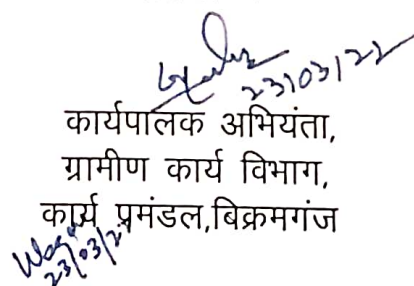 23/03/22
कार्यपालक अभियंता,
ग्रामीण कार्य विभाग,
कार्य प्रमंडल,बिक्रमगंज
23/03/2